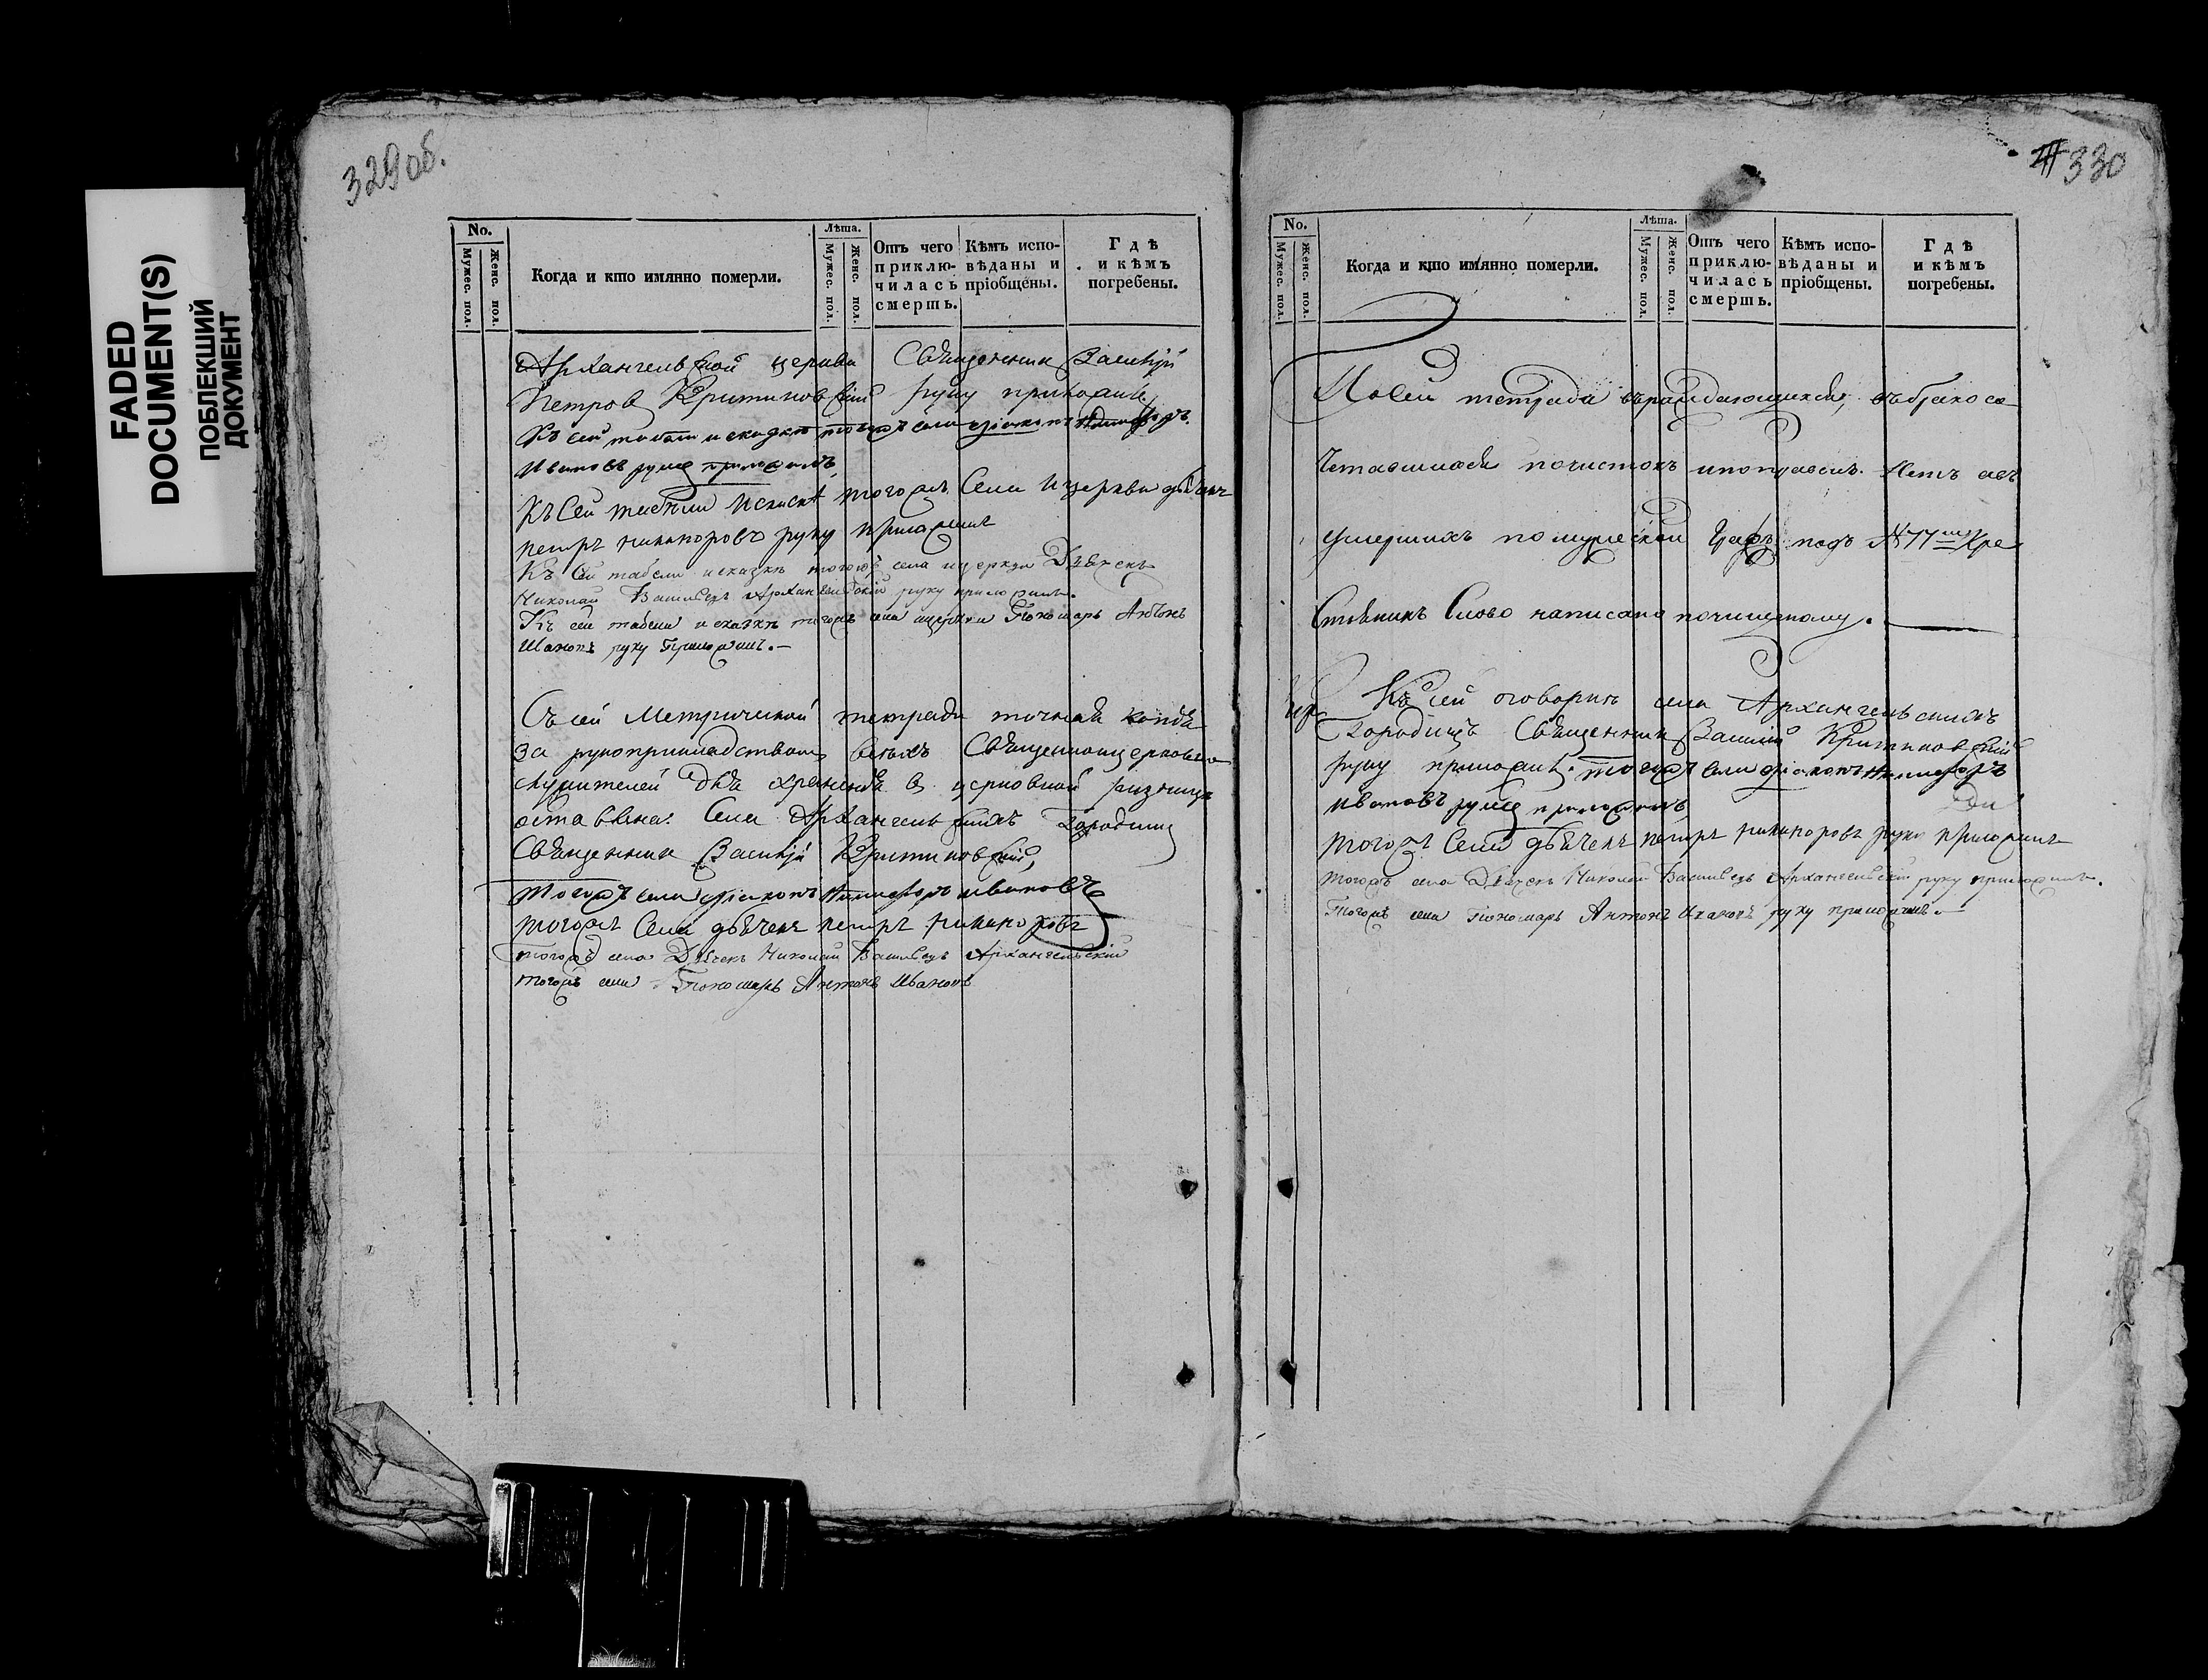 FADED
DOCUMENT(S)
ПОБЛЕКШИЙ
ДОКУМЕНТ
329об.
No.
Мужес. пол.
Женс. пол.
Когда и кто имянно померли.
Лѣта.
Мужес. пол.
Женс. пол.
Отъ чего приклю-чилась смерть.
Кѣмъ испо-вѣданы и пріобщены.
Гдѣ и кѣмъ погребены.
Архангельской церкви Священник Василій
Петров Критиновскій руку приложилъ
Къ сей табели и скаскѣ тогожъ села діаконъ Никифоръ
Ивановъ руку приложилъ
Къ Сей табели и скаскѣ тогожъ Села и церкви дьячекъ
петръ никаноровъ руку приложилъ
Къ сей табели и сказкѣ тогожъ села и церкви Дьячекъ
Николай Васильевъ Архангельскій руку приложилъ.
Къ сей табели и сказкѣ тогожъ села и церкви Пономарь Антонъ
Ивановъ руку приложилъ.
Съ сей Метрической тетради точная копія
за рукоприкладствомъ всѣхъ Священноцерковно
служителей для храненія в церковной ризнице
оставлена. Села Архангельскихъ Городищ
Священник Василій Критиновскій,
Тогожъ села діаконъ Никифоръ ивановъ
тогожъ Села дьячекъ петръ никаноровъ
тогожъ села Дьячекъ Николай Васильевъ Архангельскій
тогожъ села Пономарь Антонъ Ивановъ
330
No.
Мужес. пол.
Женс. пол.
Когда и кто имянно померли.
Лѣта.
Мужес. пол.
Женс. пол.
Отъ чего приклю-чилась смерть.
Кѣмъ испо-вѣданы и пріобщены.
Гдѣ и кѣмъ погребены.
По сей тетради въ раждающихся, въ брако со
четавшихся почисток и поправки нетъ а въ
умершихъ по мужеской графѣ подъ № 77 Кре
стьянинъ Слово написано по чищеному.
Къ сей оговоркѣ села Архангельскихъ
Городищъ Священник Василій Критиновскій
руку приложилъ. тогожъ села діаконъ Никифоръ
ивановъ руку приложилъ
тогожъ Села дьячекъ петръ никаноровъ руку приложилъ
тогожъ села Дьячекъ Николай Васильевъ Архангельскій руку приложилъ.
Тогожъ села пономарь Антонъ Ивановъ руку приложилъ.